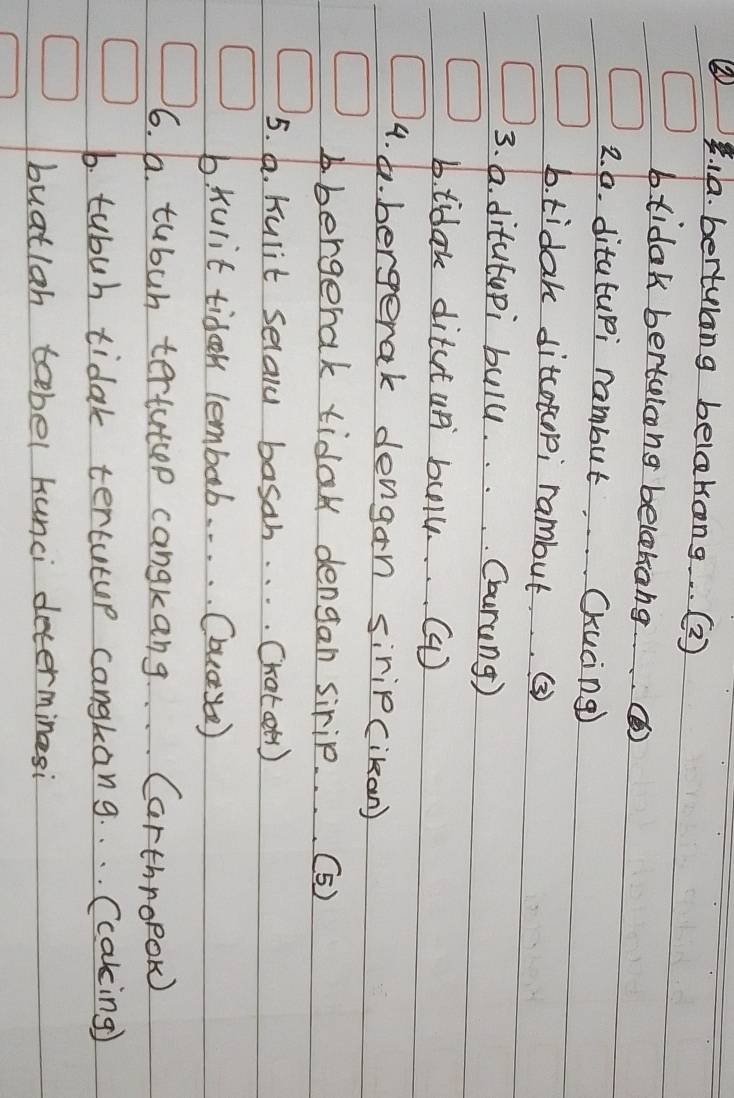 ② 1.a. bertulang belakang... (2)
b tidak bertulang belakang.... (6)
2.a. ditutupi rambut.... (kucing)
b. tidak ditutupi rambut... (3)
3. a. ditutupi bulu..... (burung)
b. tidak ditutupi bulu.... (4)
4. a. bergerak dengan sirip (ikan)
b. bergerak tidak dengan sirip.... (5)
5. a. kulit selalu basah.... (katak)
b. kulit tidak lembab..... (buaya)
6. a. tubuh tertutup cangkang.... (arthropok)
b. tubuh tidak tertutup cangkang.... (caking)
buatlah tabel kunci determinasi